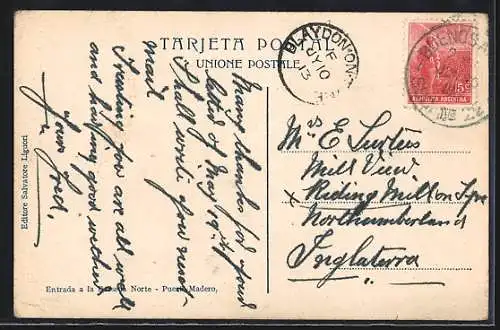 TARJETA POSTAL
UNIONE POSTALE
BLAYDON ON
JY 10
13
BUENOS A
5c
REPUBLICA ARGENTINA
Many thanks for yours
letter of May 19th
I shall write you next
mail
Trusting you are all well
and having good weather
yours
Fred.
Mrs E. Surtees
Mill View
x Riding Mill on Tyne
Northumberland
Inglaterra
Editore Salvatore Liguori
Entrada a la Darsena Norte - Puerto Madero,